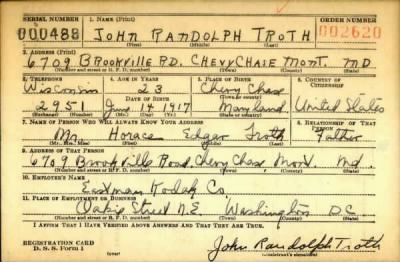 SERIAL NUMBER 1. NAME (Print) ORDER NUMBER
000488 JOHN RANDOLPH TROTH 002620
(First) (Middle) (Last)
3. ADDRESS (Print)
6709 BROOKVILLE RD. CHEVY CHASE MONT. MD
(Number and street or R. F. D. number) (Town) (County) (State)
3. TELEPHONE 4. AGE IN YEARS 5. PLACE OF BIRTH 6. COUNTRY OF CITIZENSHIP
Wisconsin 23 Chevy Chase
DATE OF BIRTH (Town or county)
2951 June 14 1917 Maryland United States
(Mo.) (Day) (Yr.) (State or country)
7. NAME OF PERSON WHO WILL ALWAYS KNOW YOUR ADDRESS 8. RELATIONSHIP OF THAT PERSON
Mr. Horace Edgar Troth Father
(Mr., Mrs., Miss) (First) (Middle) (Last)
9. ADDRESS OF THAT PERSON
6709 Brookville Road, Chevy Chase, Mont. Md.
(Number and street or R. F. D. number) (Town) (County) (State)
10. EMPLOYER'S NAME
Eastman Kodak Co.
11. PLACE OF EMPLOYMENT OR BUSINESS
Street N.E. Washington DC
(Number and street or R. F. D. number) (Town) (County) (State)
I AFFIRM THAT I HAVE VERIFIED ABOVE ANSWERS AND THAT THEY ARE TRUE.
REGISTRATION CARD
D. S. S. Form 1
John Randolph Troth